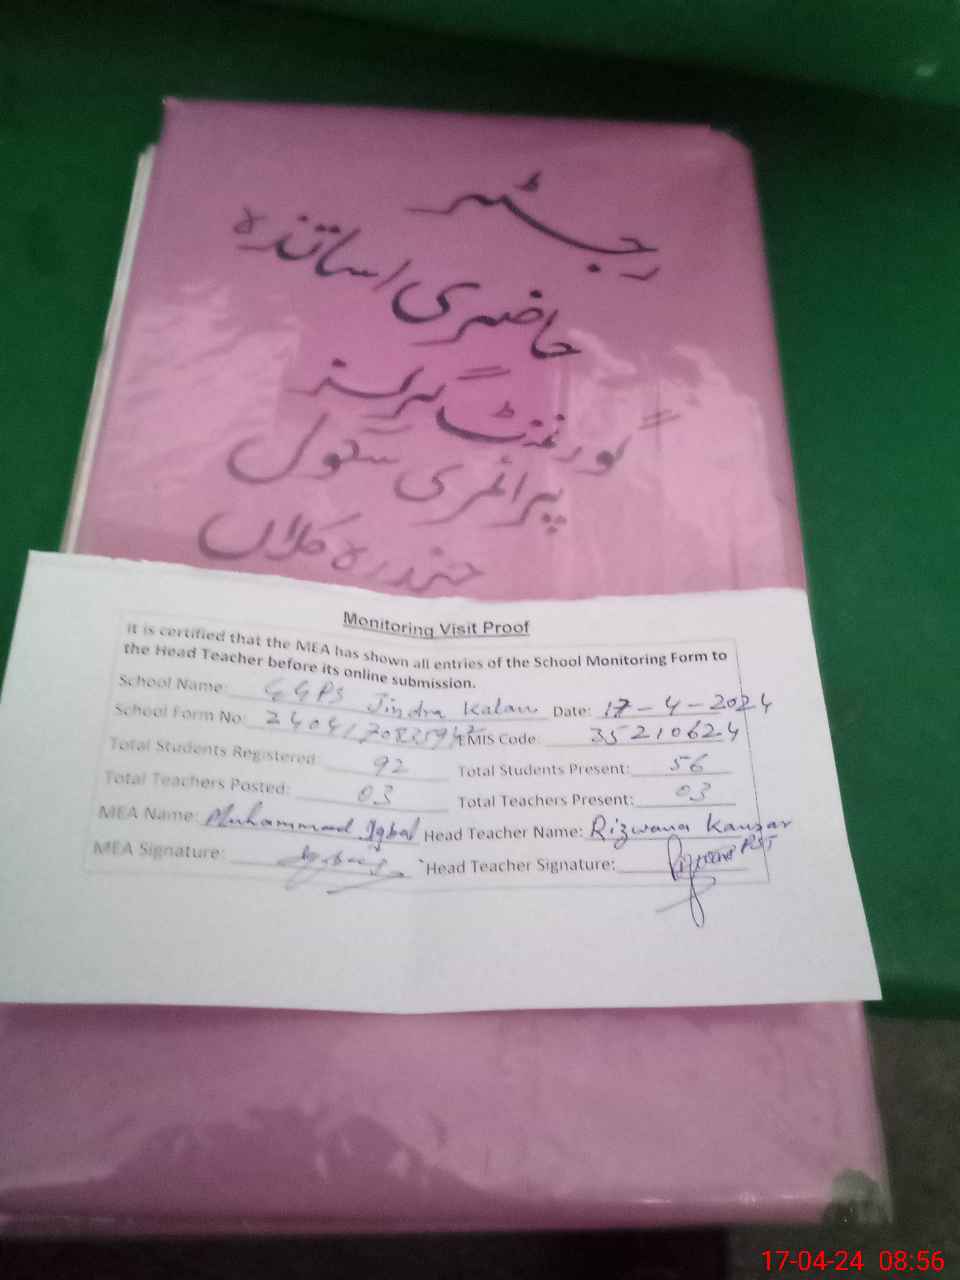 رجسٹر
حاضری اساتذہ
گورنمنٹ گرلز
پرائمری سکول
جندرہ کلاں
Monitoring Visit Proof
it is certified that the MEA has shown all entries of the School Monitoring Form to
the Head Teacher before its online submission.
School Name: GGPS Jindra Kalan Date: 17-4-2024
School Form No: EMIS Code: 35210624
Total Students Registered: 92 Total Students Present: 56
Total Teachers Posted: 03 Total Teachers Present: 03
MEA Name: Muhammad Iqbal Head Teacher Name: Rizwana Kausar
MEA Signature: Head Teacher Signature: PST
17-04-24 08:56